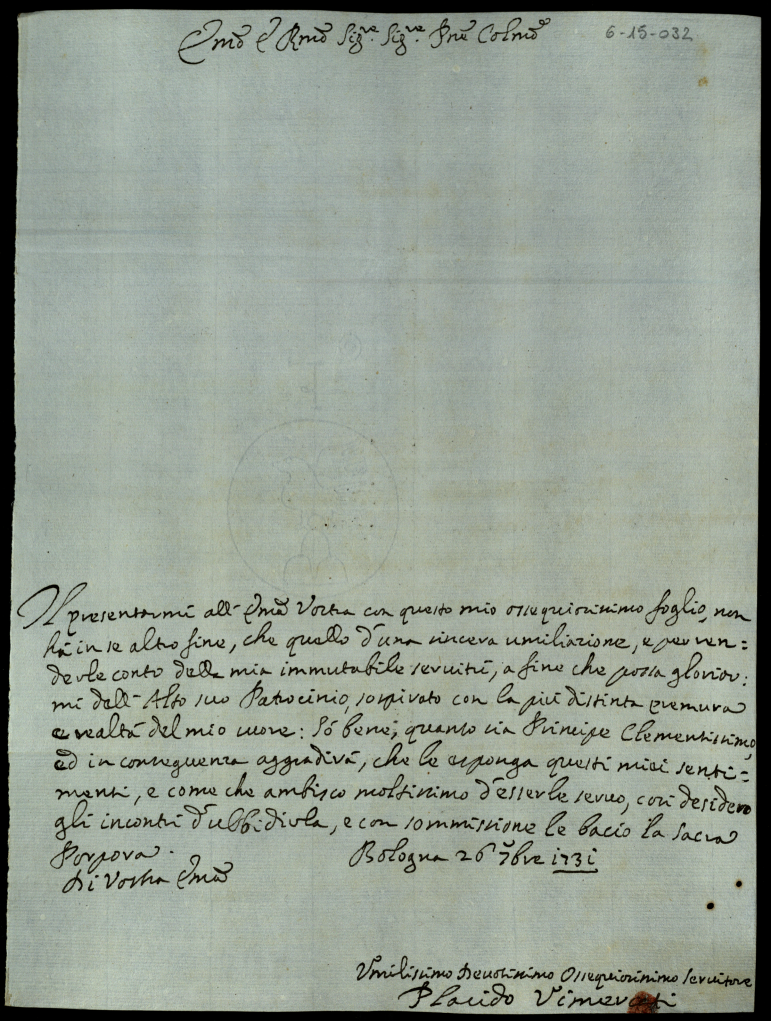 Emo e Rmo Sig.re Sig.re Pne Colmo
6-15-032
Il presentarmi all'Emza Vostra con questo mio ossequiosissimo foglio, non
há in se altro fine, che quello d'una sincera umiliazione, e per ren=
derle conto della mia immutabile servitú, a fine che possa gloriar:
mi dell'Alto suo Patrocinio, sospirato con la piú distinta premura
e realtá del mio cuore: Só bene, quanto sia Principe Clementissimo,
ed in conseguenza aggradirá, che le esponga questi miei senti=
menti, e come che ambisco moltissimo d'esserle servo, cosi desidero
gli incontri d'ubbidirla, e con sommissione le bacio la Sacra
Porpora.
Di Vostra Emza
Bologna 26 7bre 1731
Umilissimo Devotissimo Ossequiosissimo Servitore
Placido Vimercati